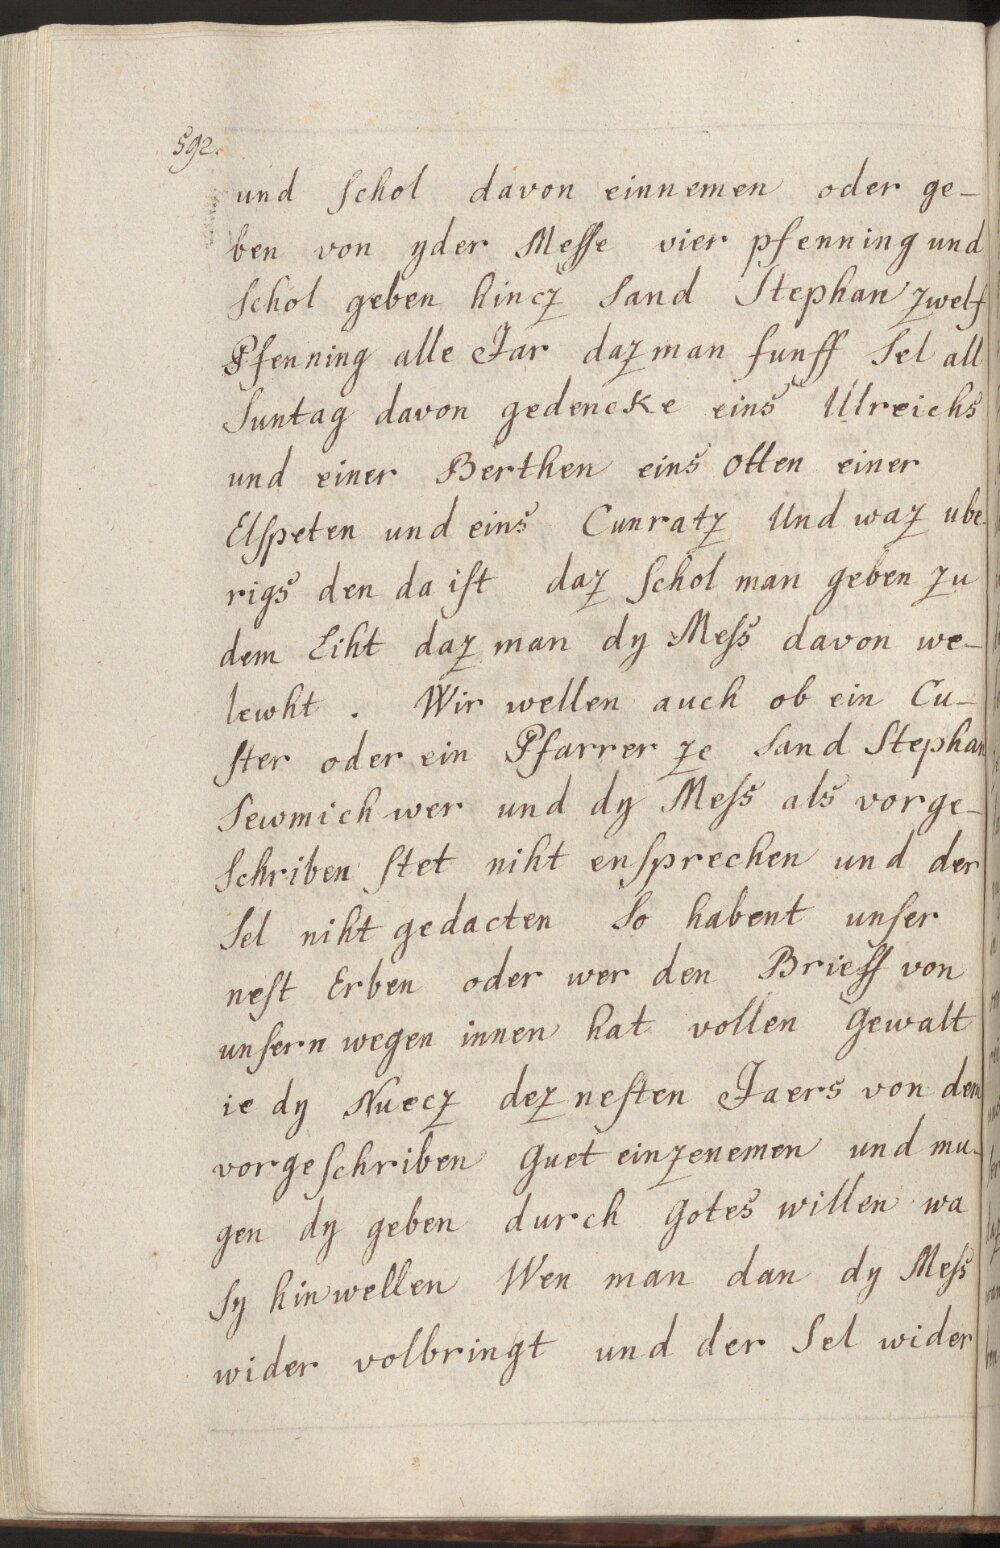 592.
und schol davon einnemen oder ge-
ben von yder Messe vier pfenning und
schol geben hincz sand Stephan zwelf
Pfenning alle Jar daz man funff Sel all
Suntag davon gedencke eins Ulreichs
und einer Berthen eins Otten einer
Elspeten und eins Cunratz Und waz ube-
rigs den da ist daz schol man geben zu
dem Liht daz man dy Mess davon we-
lewht . Wir wellen auch ob ein Cu-
ster oder ein Pfarrer ze sand Stephan
sewmich wer und dy Mess als vorge-
schriben stet niht ensprechen und der
Sel niht gedacten So habent unser
nest Erben oder wer den Brieff von
unsern wegen innen hat vollen Gewalt
ie dy Nuecz dez nesten Jaers von dem
vorgeschriben Guet einzenemen und mu-
gen dy geben durch Gotes willen wa
sy hin wellen Wen man dan dy Mess
wider volbringt und der Sel wider